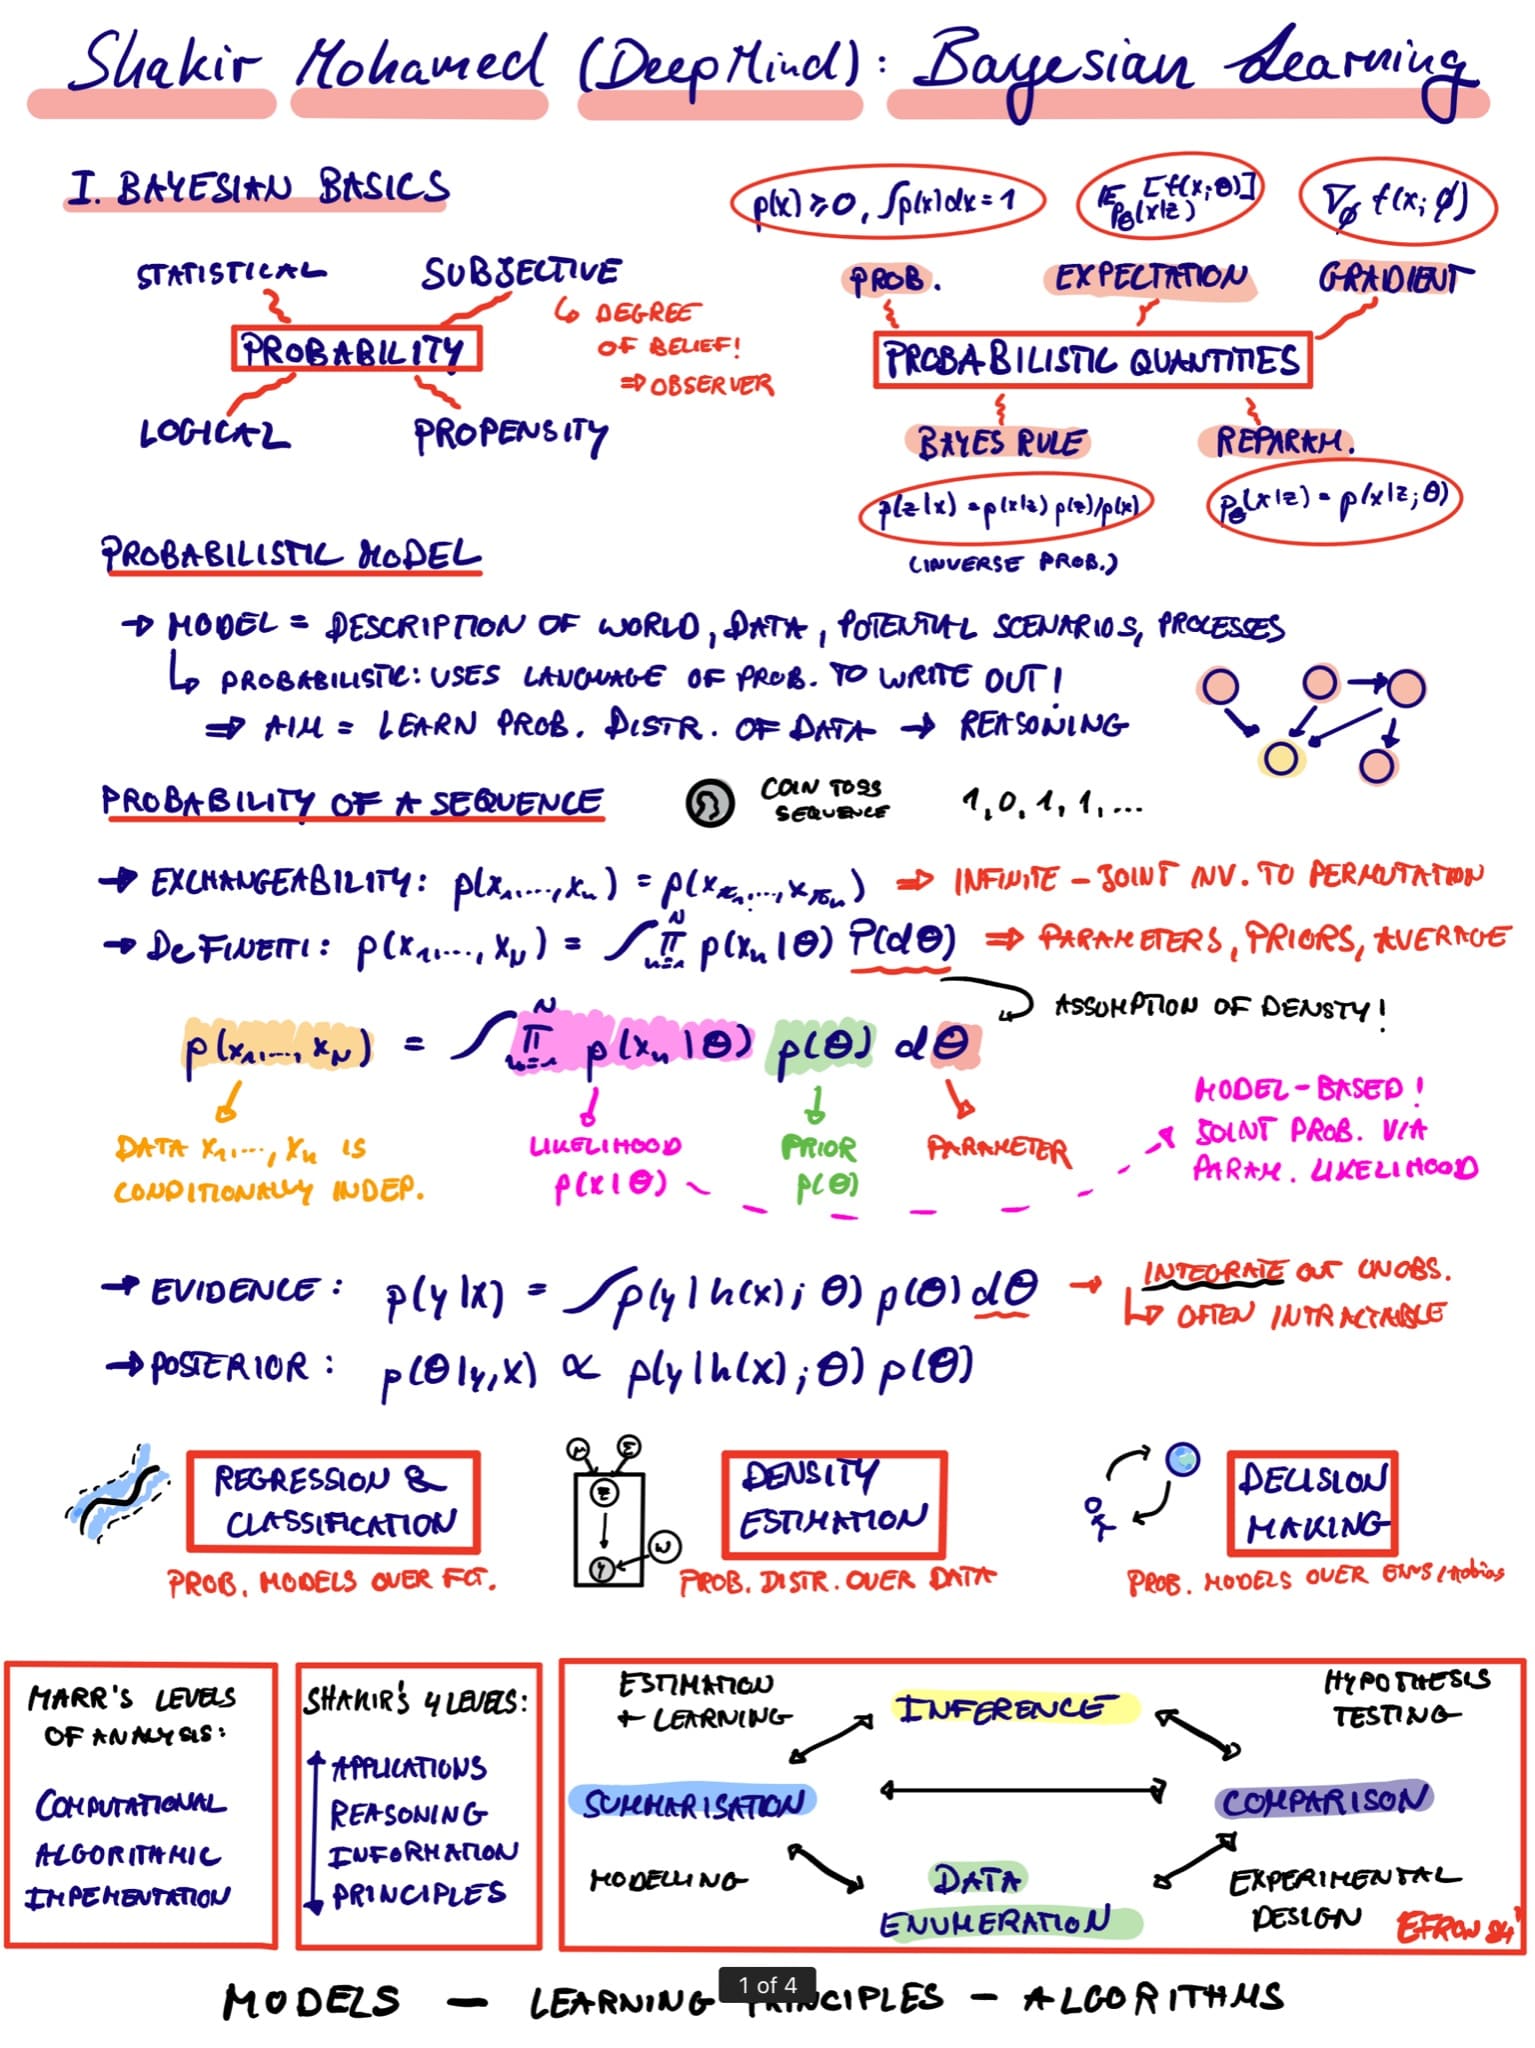 Shakir Mohamed (DeepMind): Bayesian Learning
I. BAYESIAN BASICS
STATISTICAL
SUBJECTIVE
↳ DEGREE
OF BELIEF!
⇒ OBSERVER
PROBABILITY
LOGICAL
PROPENSITY
p(x) ⩾ 0, ∫p(x)dx = 1
𝔼_{p_θ(x|z)} [f(x;θ)]
∇_ϕ f(x; ϕ)
PROB.
EXPECTATION
GRADIENT
PROBABILISTIC QUANTITIES
BAYES RULE
REPARAM.
p(z|x) = p(x|z) p(z)/p(x)
p_θ(x|z) = p(x|z; θ)
(INVERSE PROB.)
PROBABILISTIC MODEL
→ MODEL = DESCRIPTION OF WORLD, DATA, POTENTIAL SCENARIOS, PROCESSES
↳ PROBABILISTIC: USES LANGUAGE OF PROB. TO WRITE OUT!
⇒ AIM = LEARN PROB. DISTR. OF DATA → REASONING
PROBABILITY OF A SEQUENCE
COIN TOSS
SEQUENCE
1, 0, 1, 1, ...
→ EXCHANGEABILITY: p(x₁,...., xₙ) = p(x_{π₁},...., x_{πₙ}) ⇒ INFINITE - JOINT INV. TO PERMUTATION
→ DeFINETTI: p(x₁,...., x_N) = ∫ ∏_{n=1}^{N} p(xₙ|θ) P(dθ) ⇒ PARAMETERS, PRIORS, AVERAGE
ASSUMPTION OF DENSTY!
p(x₁,...., x_N) = ∫ ∏_{n=1}^{N} p(xₙ|θ) p(θ) dθ
DATA x₁,...., xₙ IS
CONDITIONALLY INDEP.
LIKELIHOOD
p(x|θ)
PRIOR
p(θ)
PARAMETER
MODEL-BASED!
JOINT PROB. VIA
PARAM. LIKELIHOOD
→ EVIDENCE: p(y|x) = ∫p(y|h(x); θ) p(θ) dθ → INTEGRATE OUT UNOBS.
↳ OFTEN INTRACTABLE
→ POSTERIOR: p(θ|y,x) ∝ p(y|h(x); θ) p(θ)
REGRESSION &
CLASSIFICATION
PROB. MODELS OVER FCT.
μ
Σ
z
y
W
DENSITY
ESTIMATION
PROB. DISTR. OVER DATA
DECISION
MAKING
PROB. MODELS OVER ENVS
MARR'S LEVELS
OF ANALYSIS:
COMPUTATIONAL
ALGORITHMIC
IMPEMENTATION
SHAKIR'S 4 LEVELS:
APPLICATIONS
REASONING
INFORMATION
PRINCIPLES
ESTIMATION
+ LEARNING
INFERENCE
HYPOTHESIS
TESTING
SUMMARISATION
COMPARISON
MODELLING
DATA
ENUMERATION
EXPERIMENTAL
DESIGN
EFRON 84'
1 of 4
MODELS - LEARNING PRINCIPLES - ALGORITHMS